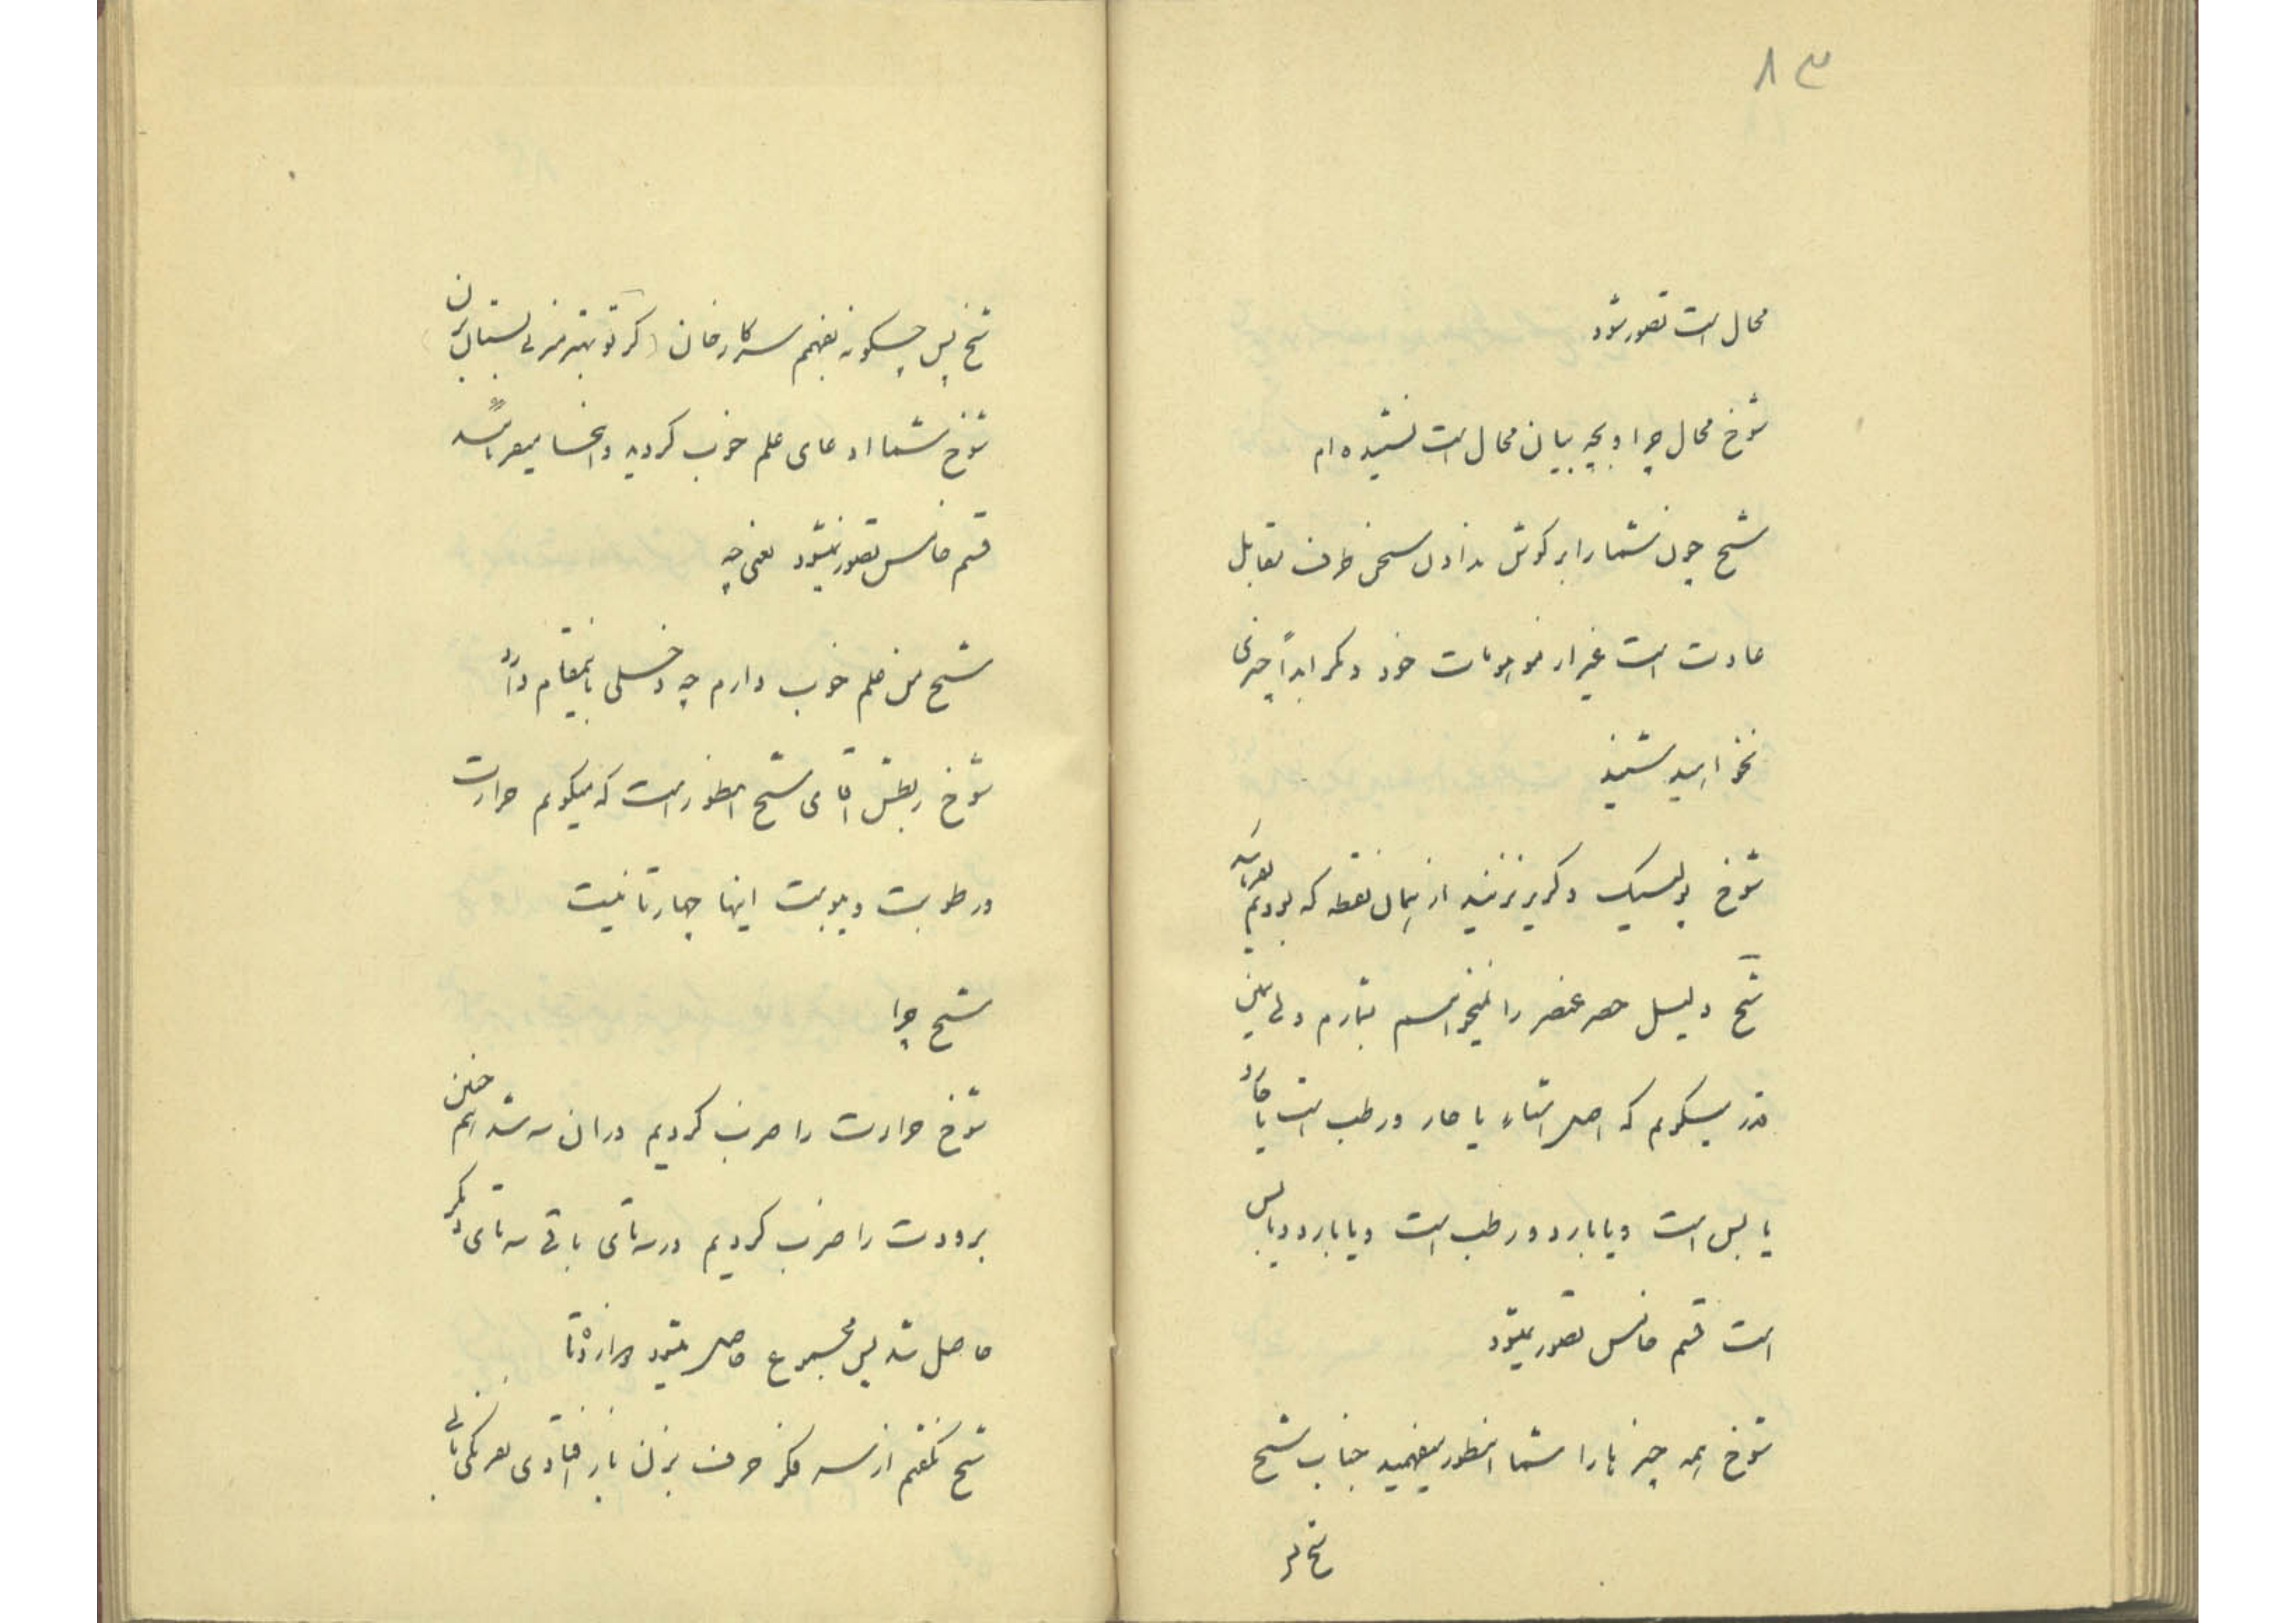 ۸۳
محال است تصور شود
شوخ محال چرا و بچه بیان محال است نشنیده ام
شیخ چون شما را بر گوش ندادن سخن طرف مقابل
عادت است غیر از موهومات خود دیگر ابداً چیزی
نخواهید شنید
شوخ پولتیک دیگر نزنید از همان نقطه که بودیم بفرمائید
شیخ دلیل حصر عنصر را نمیخواستم بیارم ولی همین
قدر میگویم که اصل اشیاء یا حار و رطب است یا حار و
یابس است و یا بارد و رطب است و یا بارد و یابس
است قسم خامس تصور نمیشود
شوخ همه چیزها را شما اینطور میفهمید جناب شیخ
شیخ پس
شیخ پس چگونه بفهمم سرکار خان (گر تو بهتر میزنی بستان بزن)
شوخ شما ادعای علم خوب کردید و اینجا میفرمائید
قسم خامس تصور نمیشود یعنی چه
شیخ من علم خوب دارم چه دخلی باینمقام دارد
شوخ ربطش آقای شیخ اینطور است که میگویم حرارت
و رطوبت و یبوست اینها چهارتا نیست
شیخ چرا
شوخ حرارت را ضرب کردیم در آن سه شد اینهم چنین
برودت را ضرب کردیم در سه تای باقی سه تای دیگر
حاصل شد پس مجموع حاصل میشود
شیخ نگفتم از سه فکر حرف بزن باز افتادی